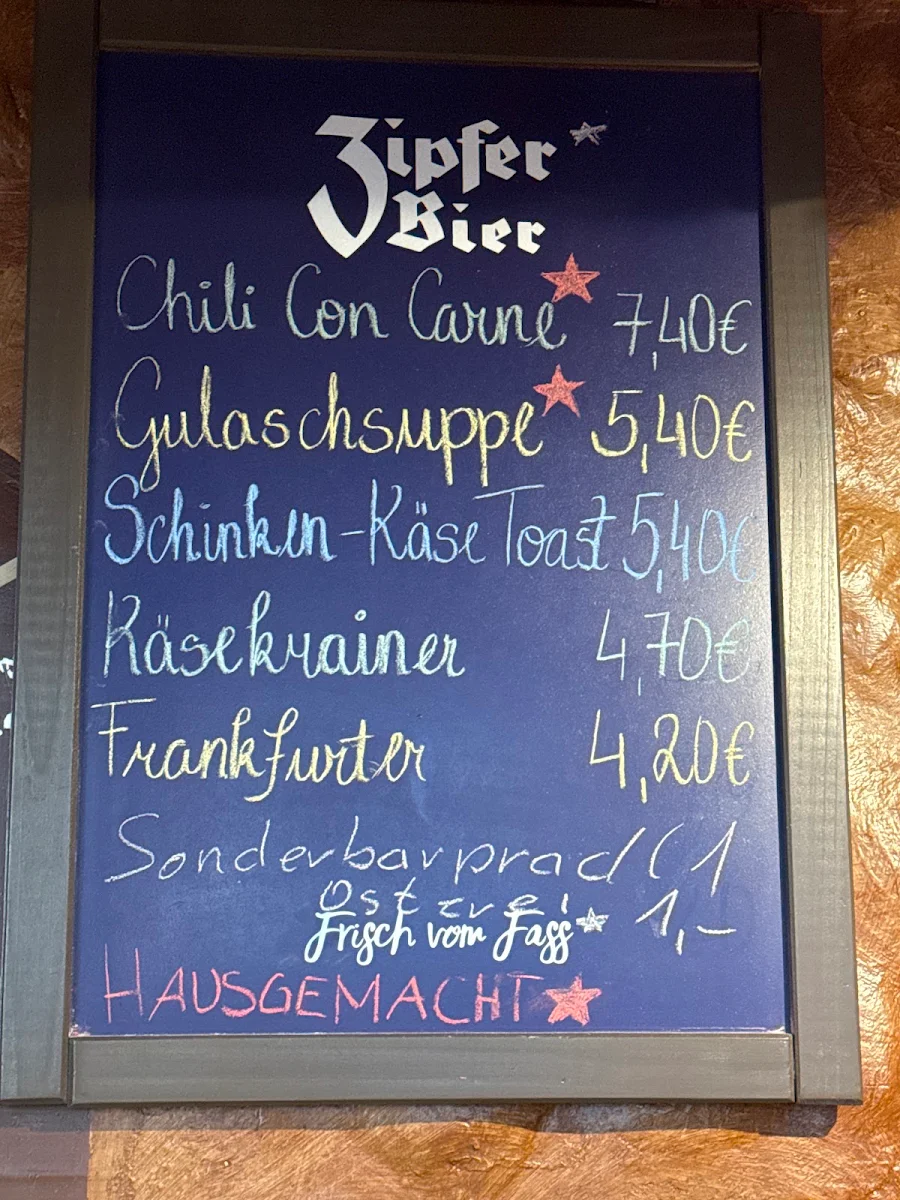 Zipfer
Bier
Chili Con Carne 7,40€
Gulaschsuppe 5,40€
Schinken-Käse Toast 5,40€
Käsekrainer 4,70€
Frankfurter 4,20€
1
Frisch vom Fass 1,-
HAUSGEMACHT